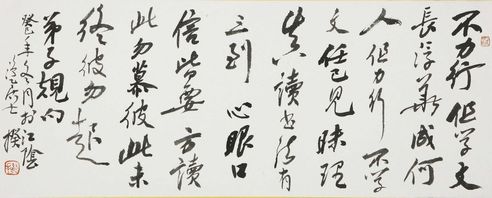 不力行但学文
長浮華成何
人但力行不学
文任己見昧理
真讀书法有
三到 心眼口
信皆要方讀
此勿慕彼此未
終彼勿起
弟子規句
癸巳年冬月於江陰
居士